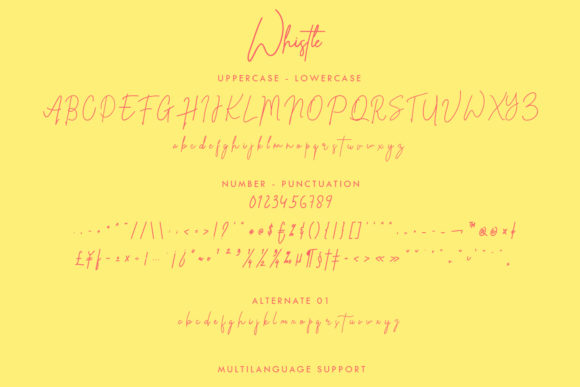 Whistle
UPPERCASE - LOWERCASE
ABCDEFGHIJKLMNOPQRSTUVWXYZ
abcdefghijklmnopqrstuvwxyz
NUMBER - PUNCTUATION
0123456789
ALTERNATE 01
abcdefghijklmnopqrstuvwxyz
MULTILANGUAGE SUPPORT